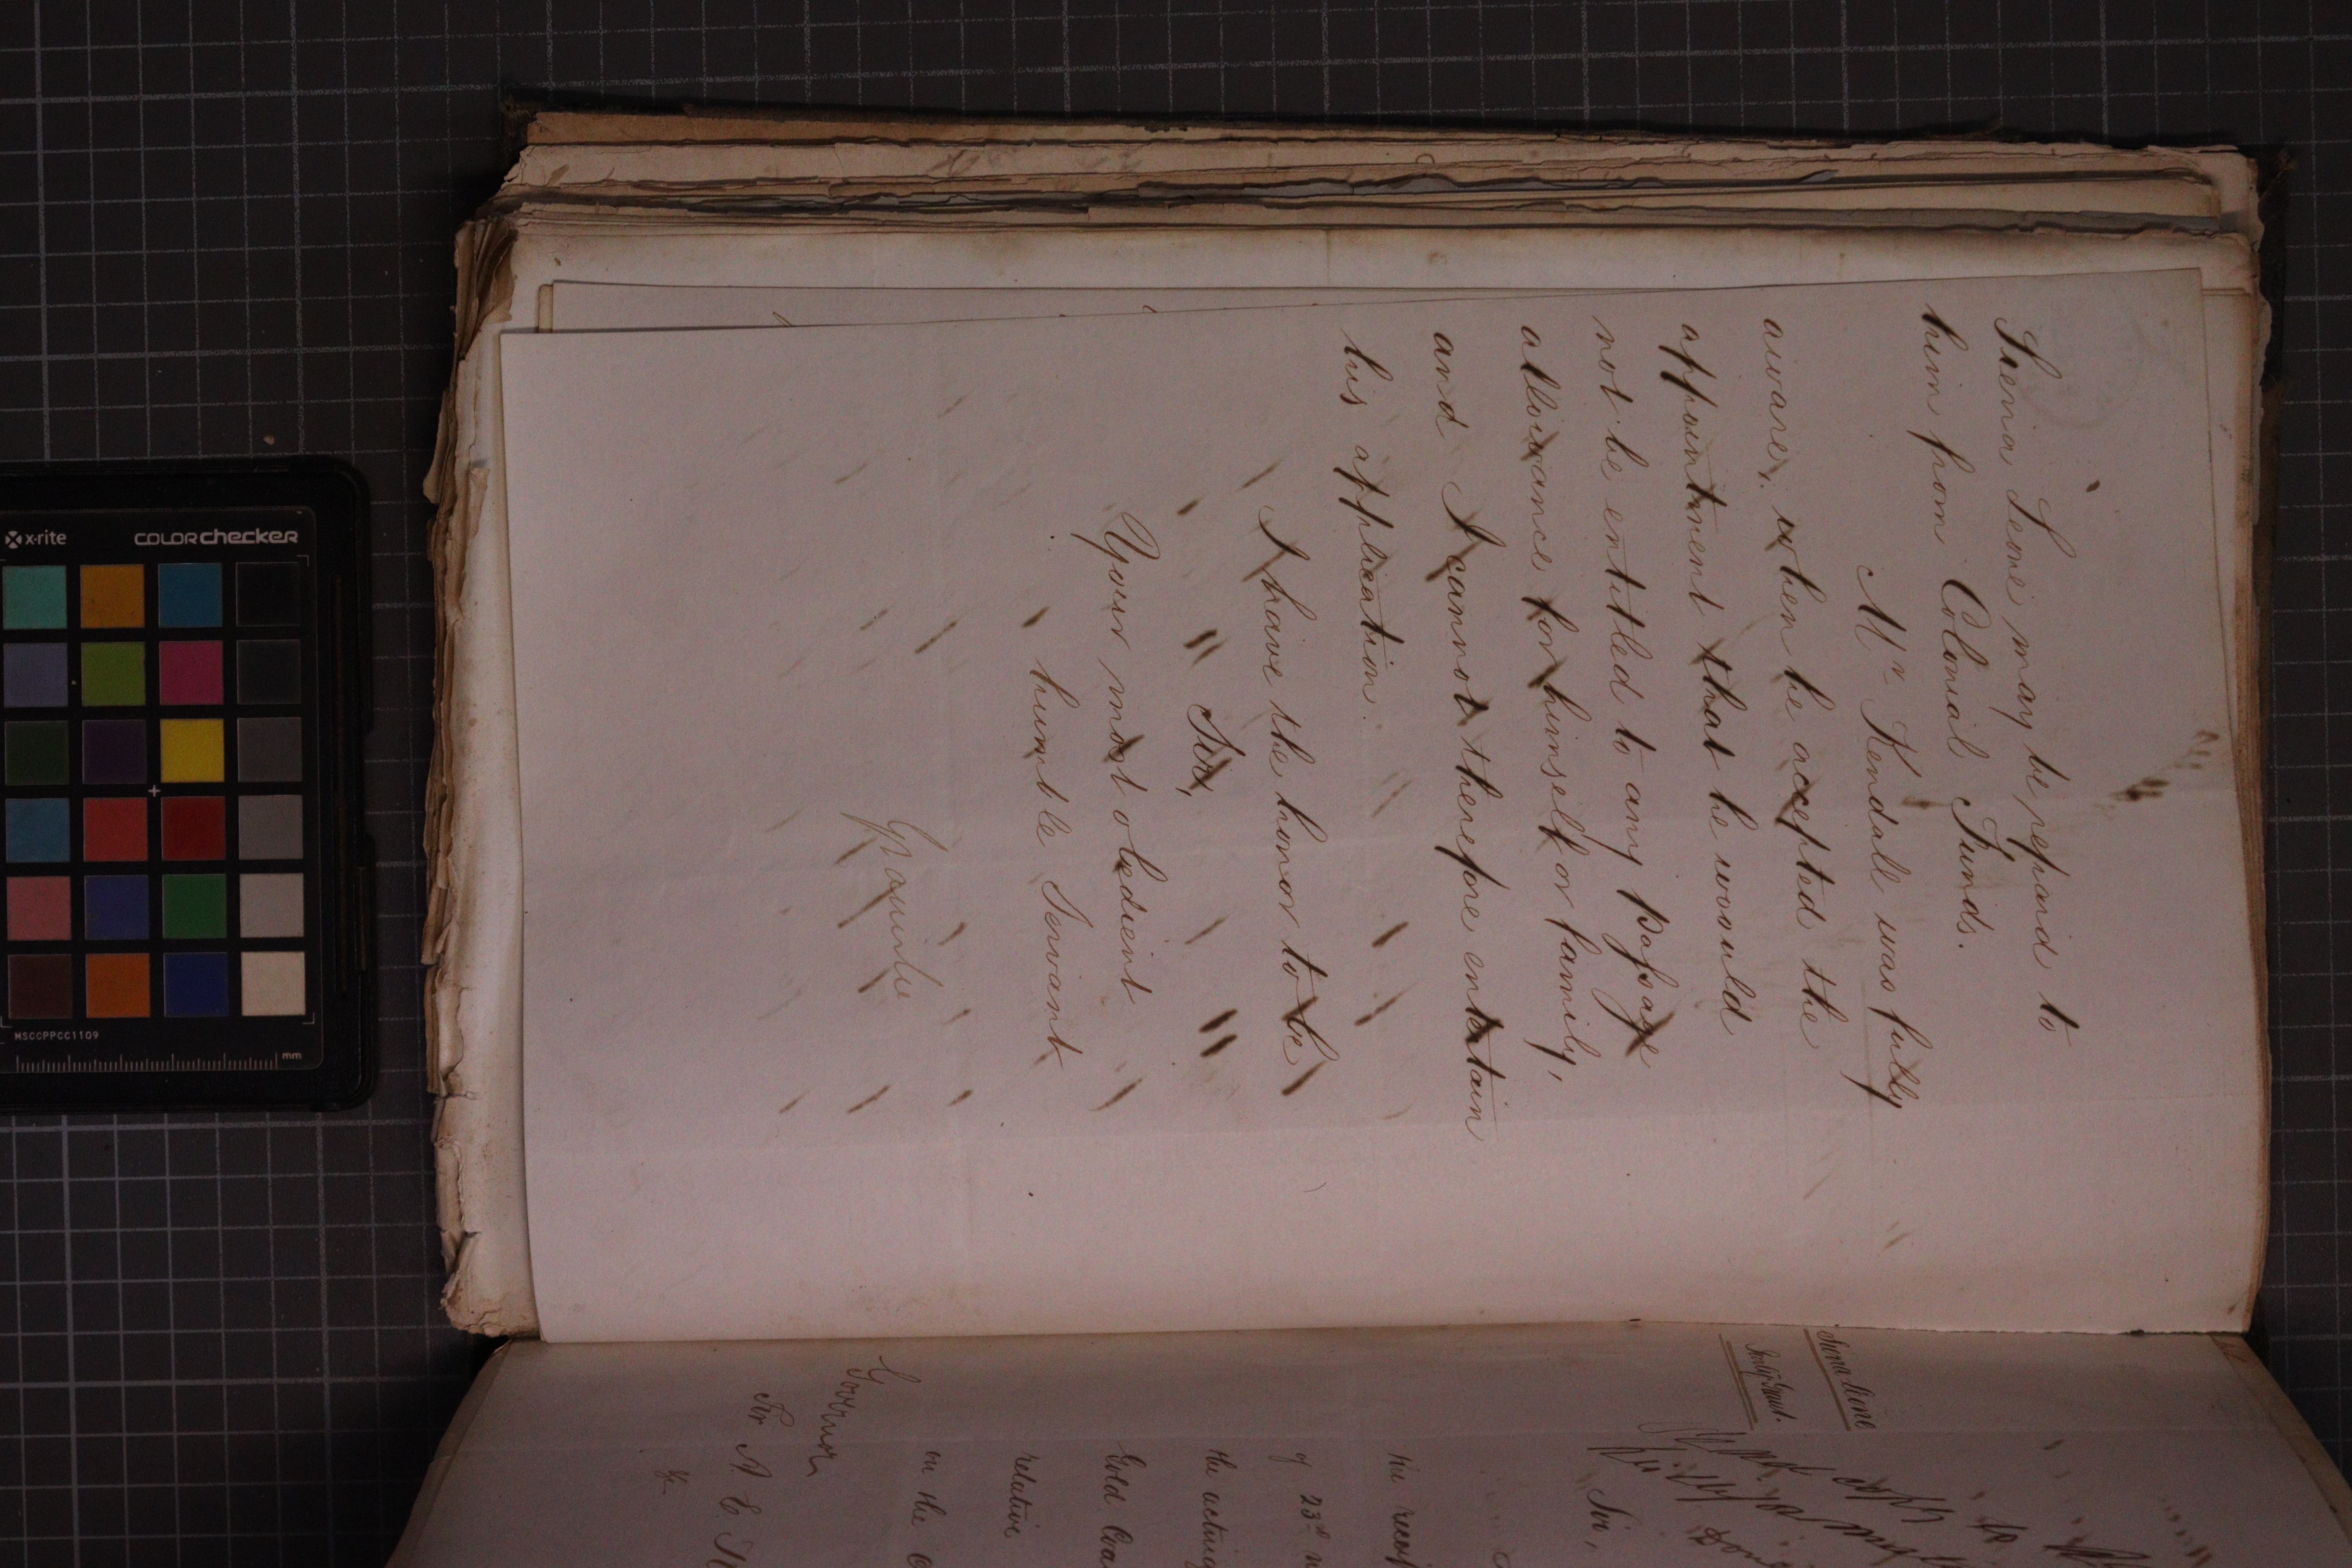 Sierra Leone may be repaid to
him from Colonial Funds.
Mr Kendall was fully
aware, when he accepted the
appointment that he would
not be entitled to any passage
allowance for himself or family,
and I cannot therefore entertain
his application.
I have the honor to be
Sir,
Your most obedient
humble Servant
Granville
Sierra Leone
Sir,
the
of 23rd
the acting
Gold Coa
relative
on the
Governor
Sir A. E.
&c
x-rite
colorchecker
MSCCPPCC1109
mm